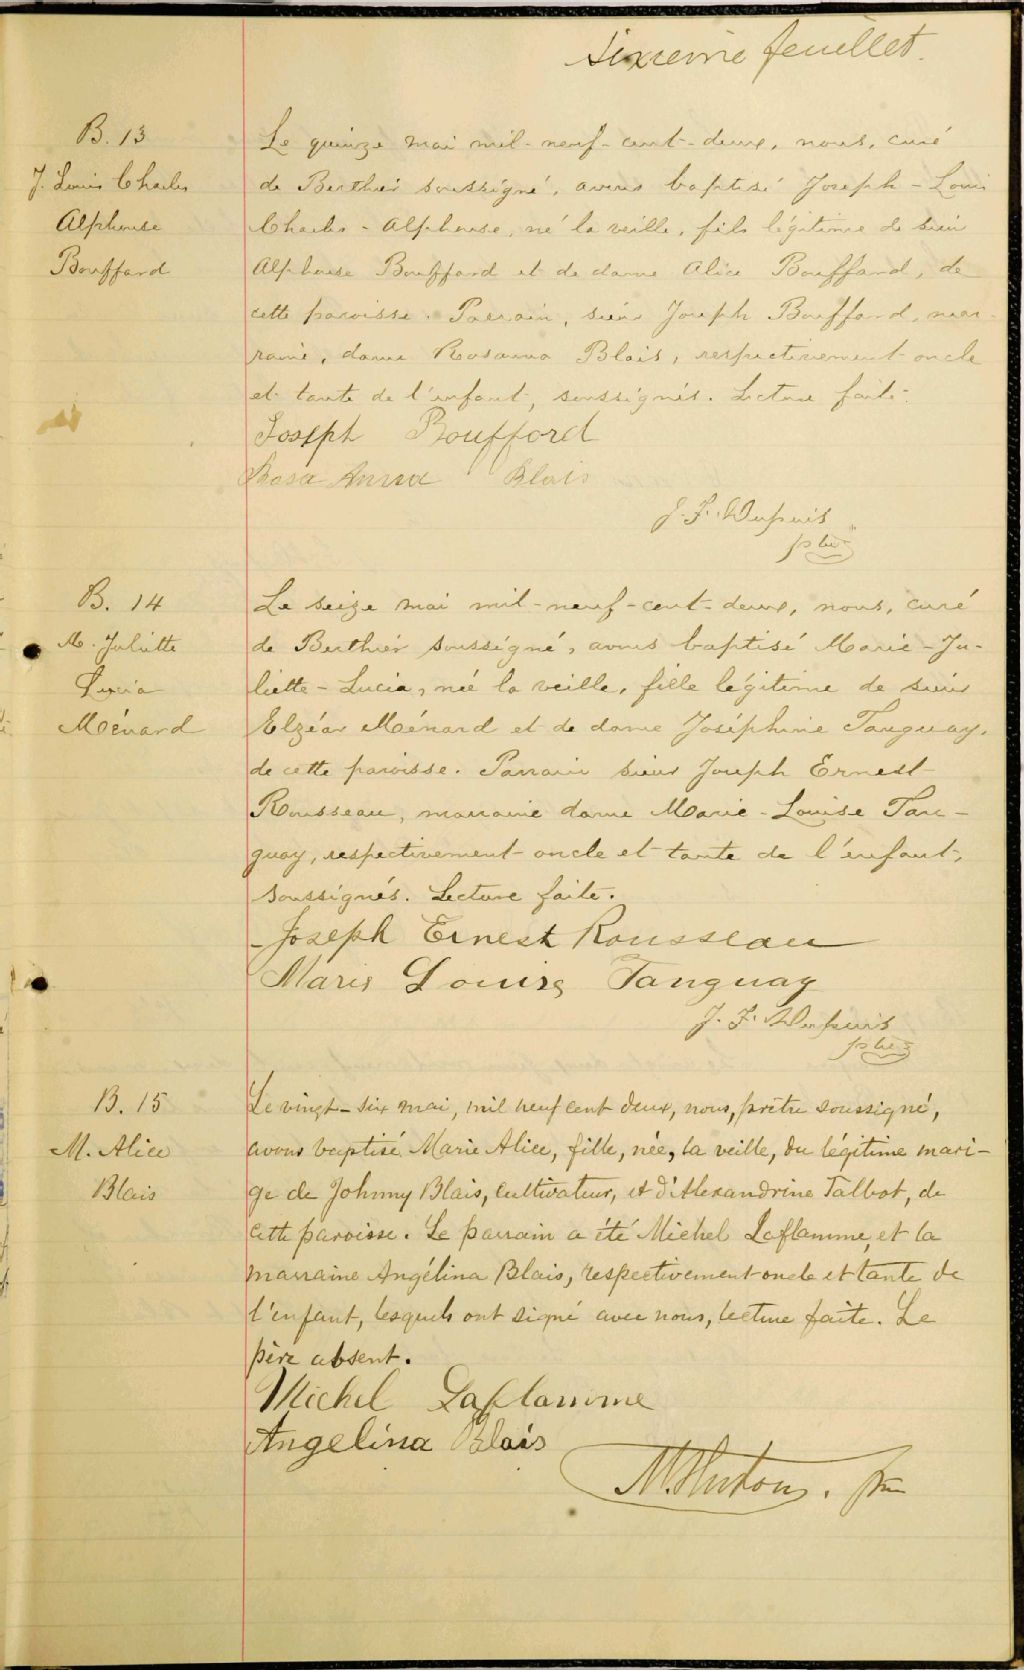 Sixième feuillet.
B. 13
J. Louis Charles
Alphonse
Bouffard
Le quinze mai mil-neuf-cent-deux, nous, curé
de Berthier soussigné, avons baptisé Joseph-Louis
Charles-Alphonse, né la veille, fils légitime de sieur
Alphonse Bouffard et de dame Alice Bouffard, de
cette paroisse. Parrain, sieur Joseph Bouffard, mar-
raine, dame Rosanna Blais, respectivement oncle
et tante de l'enfant, soussignés. Lecture faite.
Joseph Boufford
Rosa Anna Blais
J. F. Dupuis
ptre
B. 14
M. Juliette
Lucia
Ménard
Le seize mai mil-neuf-cent-deux, nous, curé
de Berthier soussigné, avons baptisé Marie-Ju-
liette-Lucia, née la veille, fille légitime de sieur
Elzéar Ménard et de dame Joséphine Tanguay,
de cette paroisse. Parrain sieur Joseph Ernest
Rousseau, marraine dame Marie-Louise Tan-
guay, respectivement oncle et tante de l'enfant,
soussignés. Lecture faite.
Joseph Ernest Rousseau
Marie Louise Tanguay
J. F. Dupuis
ptre
B. 15
M. Alice
Blais
Le vingt-six mai, mil neuf cent deux, nous, prêtre soussigné,
avons baptisé Marie Alice, fille, née, la veille, du légitime mari-
ge de Johnny Blais, cultivateur, et d'Alexandrine Talbot, de
cette paroisse. Le parrain a été Michel Laflamme, et la
marraine Angélina Blais, respectivement oncle et tante de
l'enfant, lesquels ont signé avec nous, lecture faite. Le
père absent.
Michel Laflamme
Angelina Blais
ptre